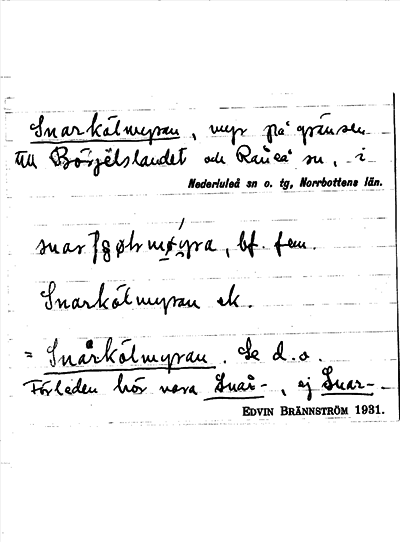 Snarkölmyran, myr på gränsen
till Börjelslandet och Råneå sn, i
Nederluleå sn o. tg, Norrbottens län.
myra, bf. fem.
Snarkölmyran ek.
= Snårkölmyran. Se d.o.
Förleden bör vara Snår-, ej Snar-.
EDVIN BRÄNNSTRÖM 1931.